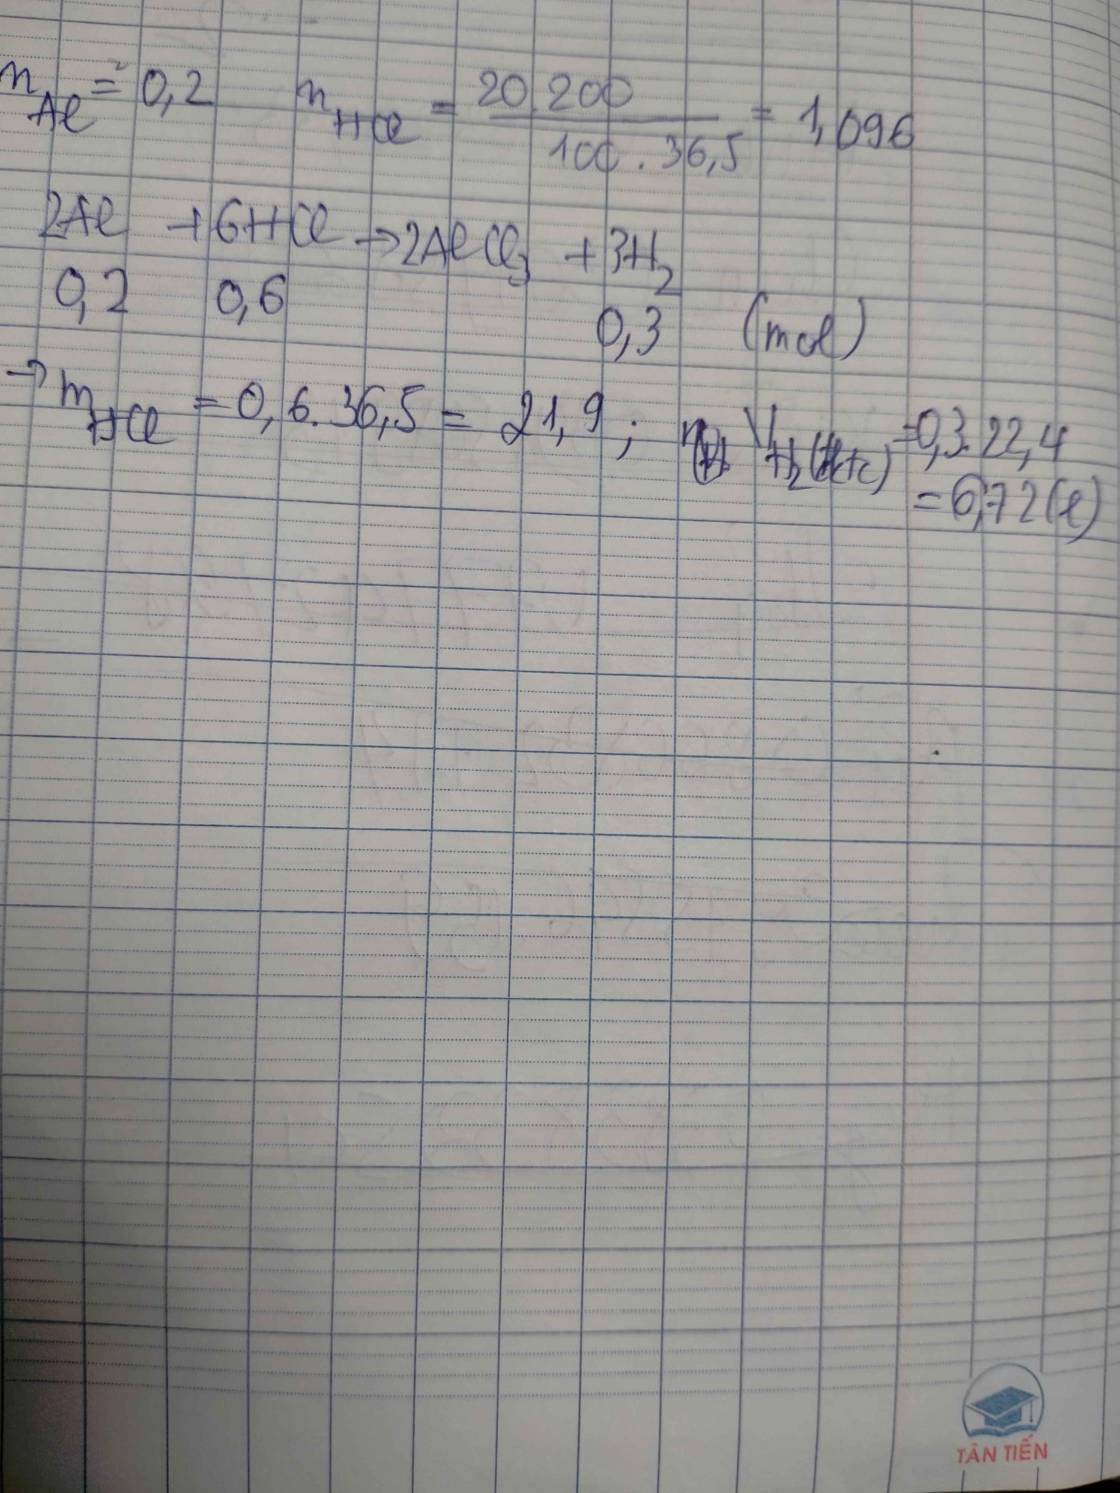 n_Al = 0,2 n_HCl = 20.200 / 100.36,5 = 1,096
2Al + 6HCl → 2AlCl₃ + 3H₂
0,2 0,6 0,3 (mol)
→ m_HCl = 0,6.36,5 = 21,9 ; V_H₂(đktc) = 0,3.22,4
= 6,72(l)
TÂN TIẾN